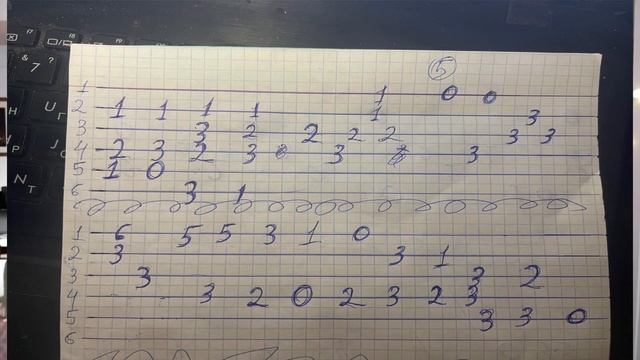 5
1 1 0 0
2 1 1 1 1 1 3
3 3 2 2 2 2 3 3
4 2 3 2 3 3 3
5 1 0
6 3 1
1 6 5 5 3 1 0
2 3 3 1
3 3 3 2
4 3 2 0 2 3 2 3
5 3 3 0
6